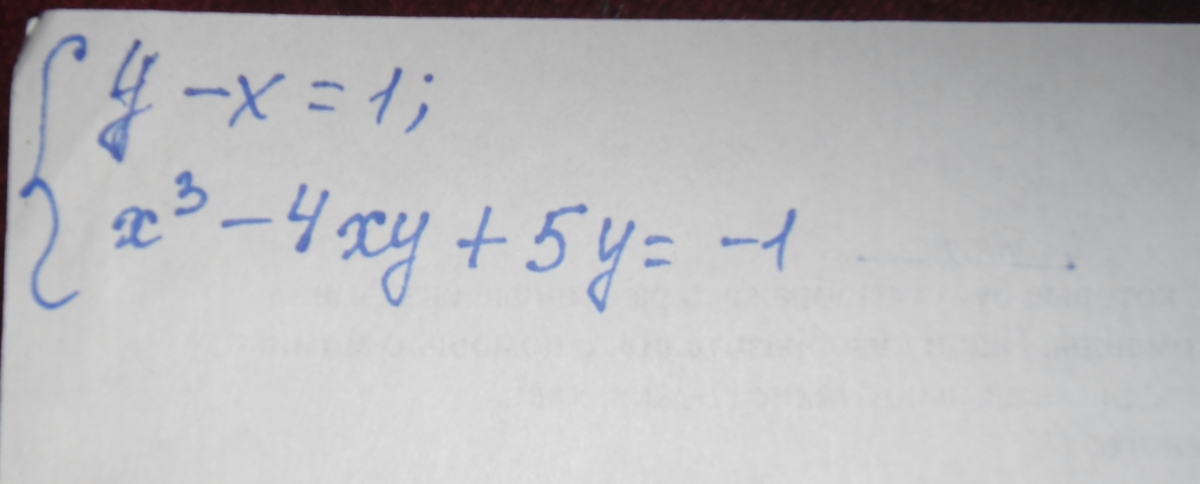 y - x = 1;
x³ - 4xy + 5y = -1